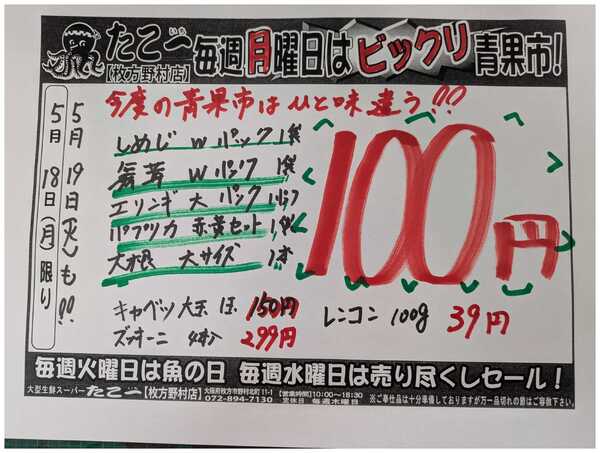 たこ一
【枚方野村店】
毎週月曜日はビックリ青果市!
今度の青果市はひと味違う!!
5月18日(月)限り
5月19日(火)も!!
しめじ Wパック 1袋
舞茸 Wパック 1袋
エリンギ 大パック 1パック
パプリカ 赤黄セット 1袋
大根 大サイズ 1本
100円
キャベツ 大玉 1玉 150円
ズッキーニ 4本入 299円
レンコン 100g 39円
毎週火曜日は魚の日 毎週水曜日は売り尽くしセール!
大型生鮮スーパーたこ一【枚方野村店】
大阪府枚方市野村北町11-1
072-894-7130
【営業時間】10:00〜18:30
定休日 毎週木曜日
※ご奉仕品は十分準備しておりますが万一品切れの節はご容赦下さい。